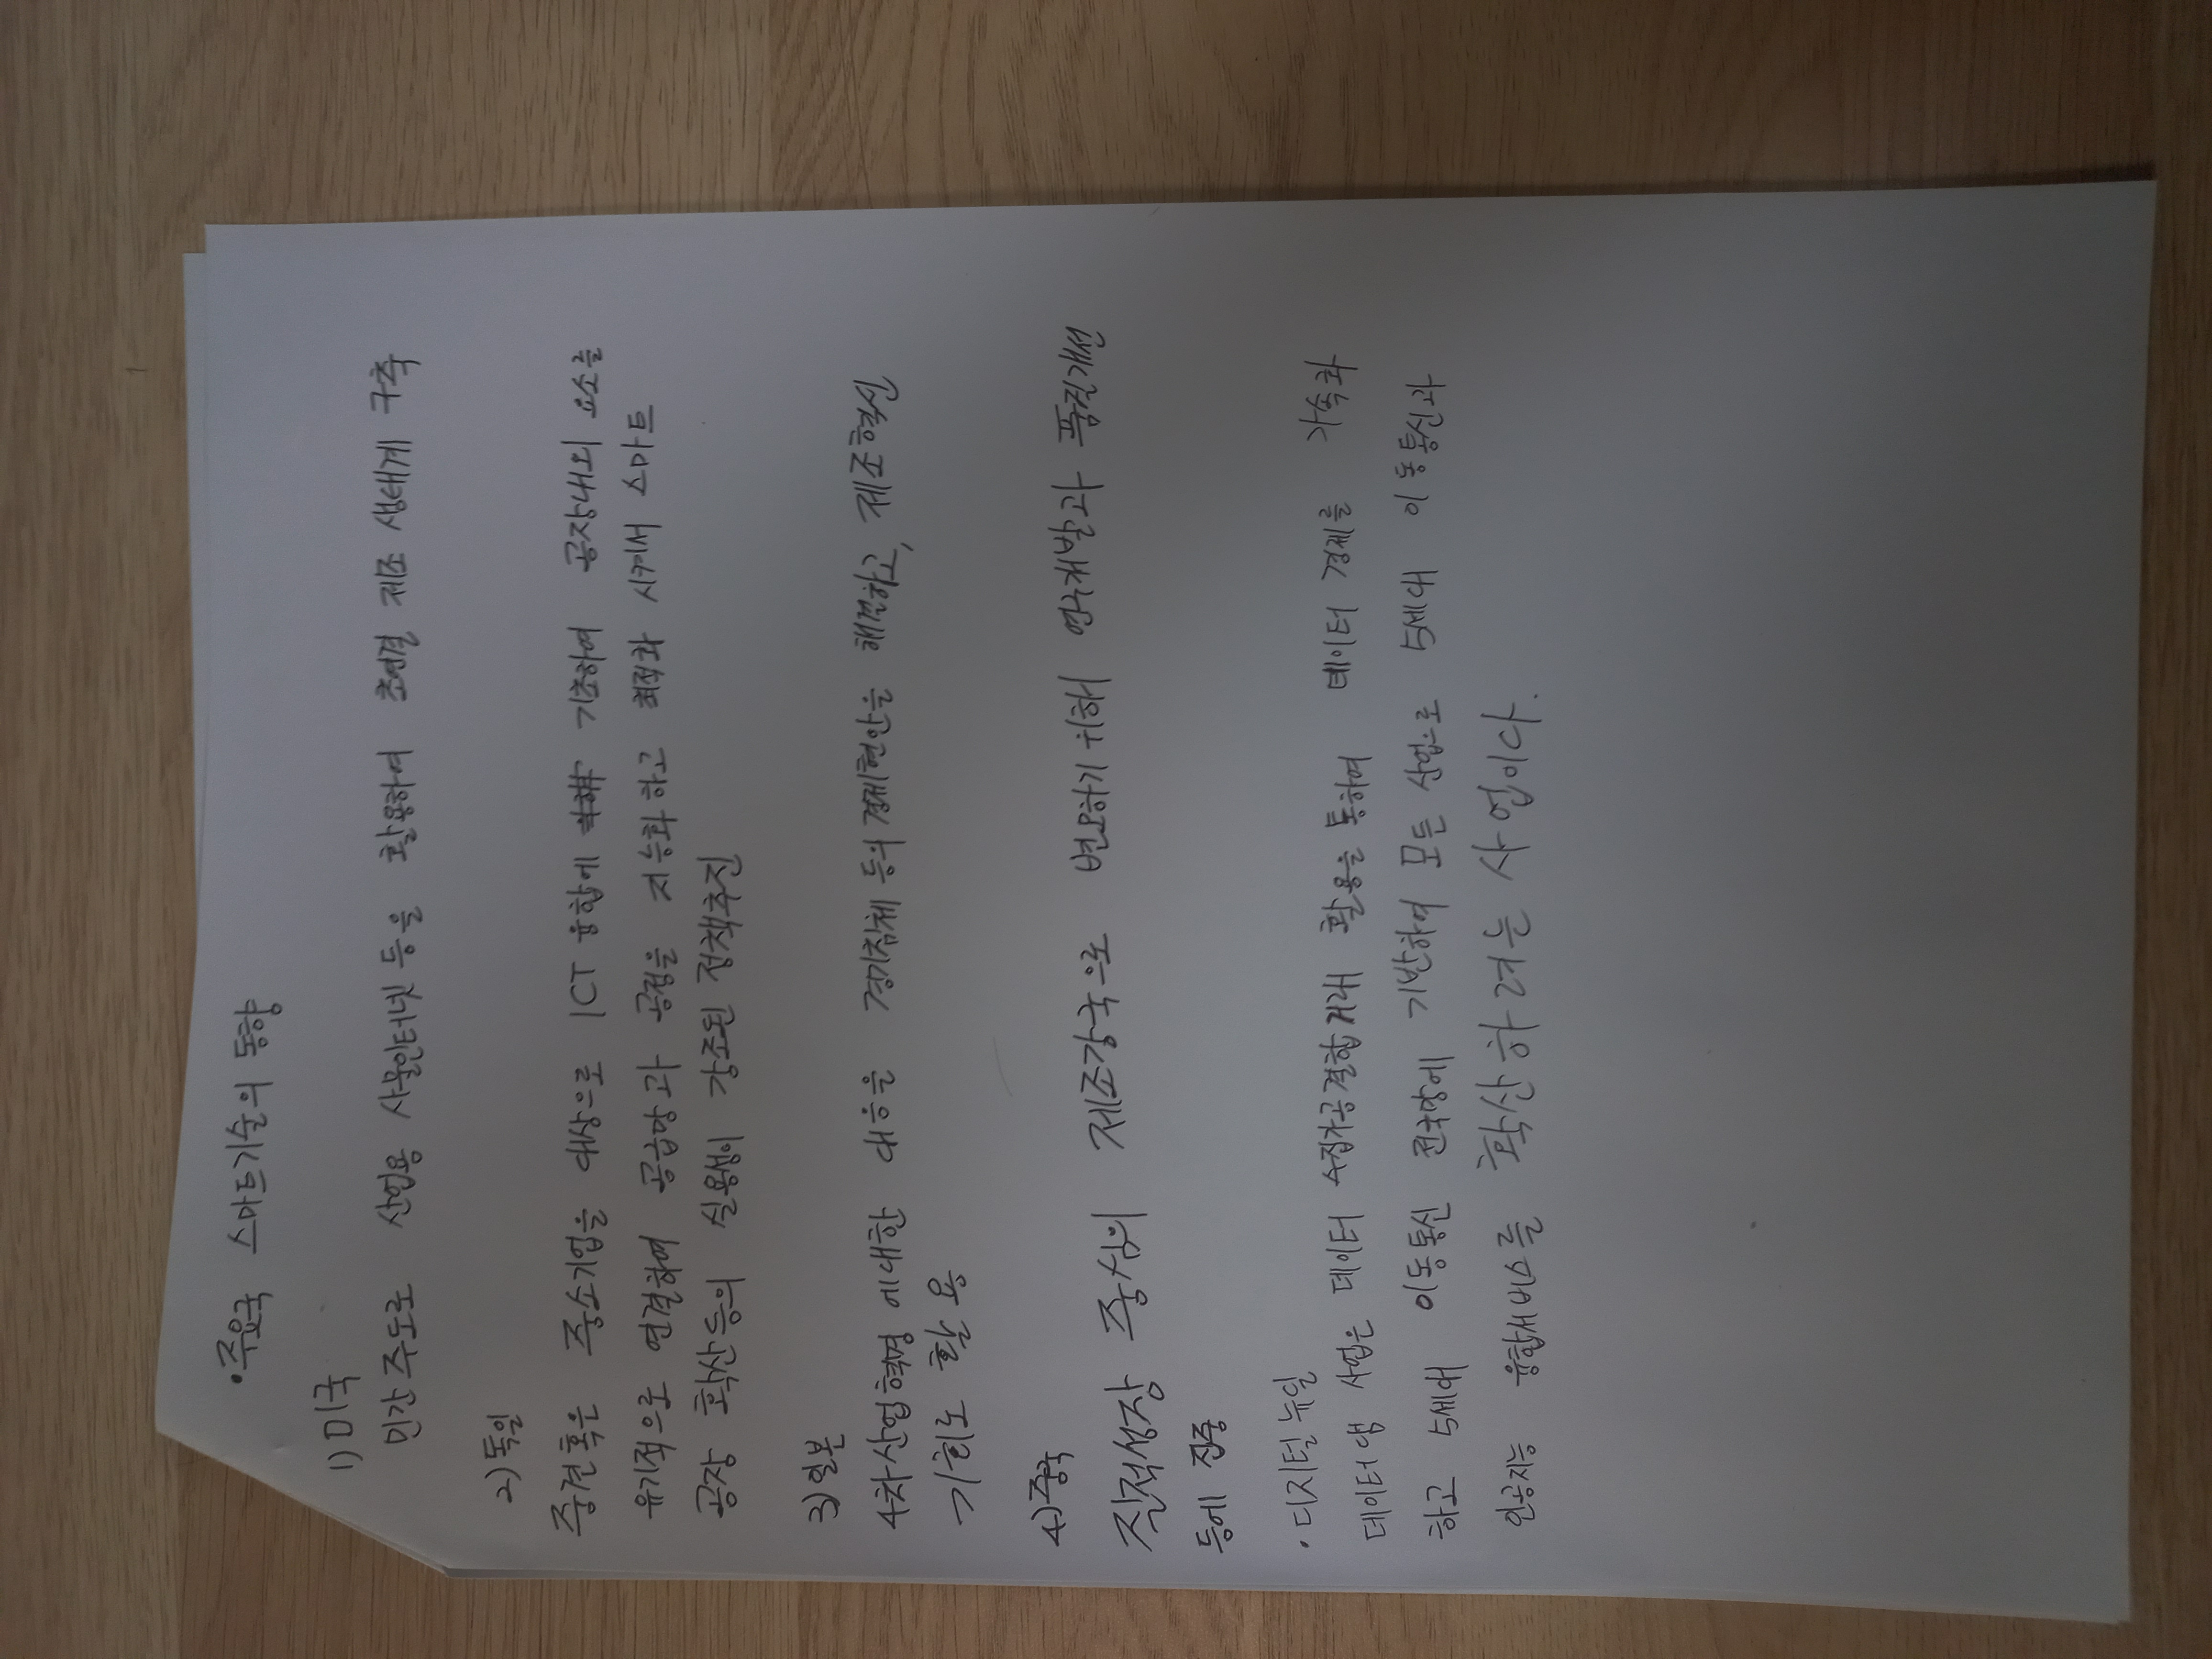 · 주요국 스마트기술의 동향
1) 미국
민간 주도로 산업용 사물인터넷 등을 활용하여 초연결 제조 생태계 구축
2) 독일
중견 혹은 중소기업을 대상으로 ICT 융합에 기초하여 공장내의 요소를
유기적으로 연결하여 공급망과 공정을 지능화 하고 최적화 시켜서 스마트
공장 확산 등의 실용성이 강조된 정책추진
3) 일본
4차산업혁명 에대한 대응을 경기침체 등의 경제현안을 해결하고, 제조혁신
기회로 활용
4) 중국
질적성장 중심의 제조강국으로 변모하기 위해 연구개발과 품질개선
등에 집중
· 디지털 뉴딜
데이터댐 사업은 데이터 수집가공결합거래 활용을 통하여 데이터 경제를 가속화
하고 5세대 이동통신 전국망에 기반하여 모든 산업으로 5세대 이동통신과
인공지능 융합서비스를 확산하려는 사업이다.